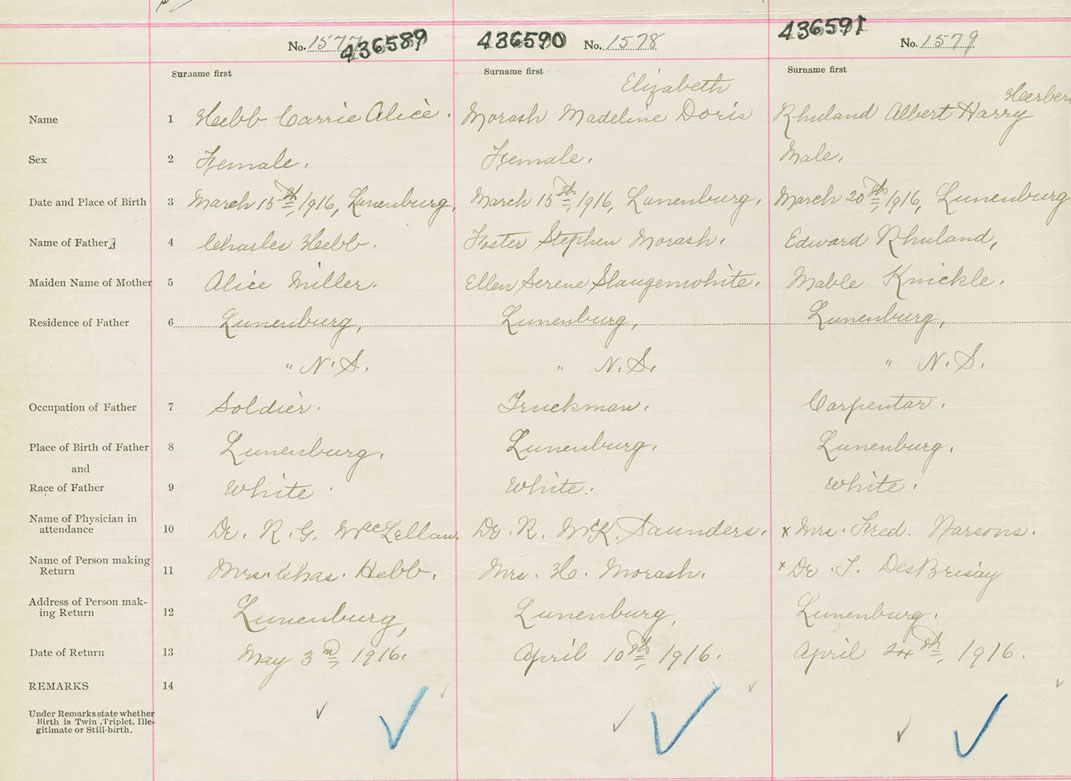 No. 1577 436589 436590 No. 1578 436591 No. 1579
Surname first Surname first Surname first
Elizabeth Herber
Name 1 Hebb Carrie Alice. Morash Madeline Doris Rhuland Albert Harry
Sex 2 Female. Female. Male.
Date and Place of Birth 3 March 15th, 1916, Lunenburg, March 15th, 1916, Lunenburg. March 20th, 1916, Lunenburg
Name of Father 4 Charles Hebb. Foster Stephen Morash. Edward Rhuland,
Maiden Name of Mother 5 Alice Miller. Ellen Serene Slaugenwhite. Mable Knickle.
Residence of Father 6 Lunenburg, Lunenburg, Lunenburg,
" N.S. " N.S. " N.S.
Occupation of Father 7 Soldier. Truckman. Carpentar.
Place of Birth of Father 8 Lunenburg. Lunenburg. Lunenburg.
and
Race of Father 9 White. White. White.
Name of Physician in
attendance 10 Dr. R. G. McLellan. Dr. R. McK. Saunders. x Mrs. Fred. Parsons.
Name of Person making
Return 11 Mrs. Chas. Hebb. Mrs. H. Morash. x Dr J. DesBrisay
Address of Person mak-
ing Return 12 Lunenburg, Lunenburg, Lunenburg.
Date of Return 13 May 3rd, 1916. April 10th, 1916. April 24th, 1916.
REMARKS 14
Under Remarks state whether
Birth is Twin, Triplet, Ille-
gitimate or Still-birth.